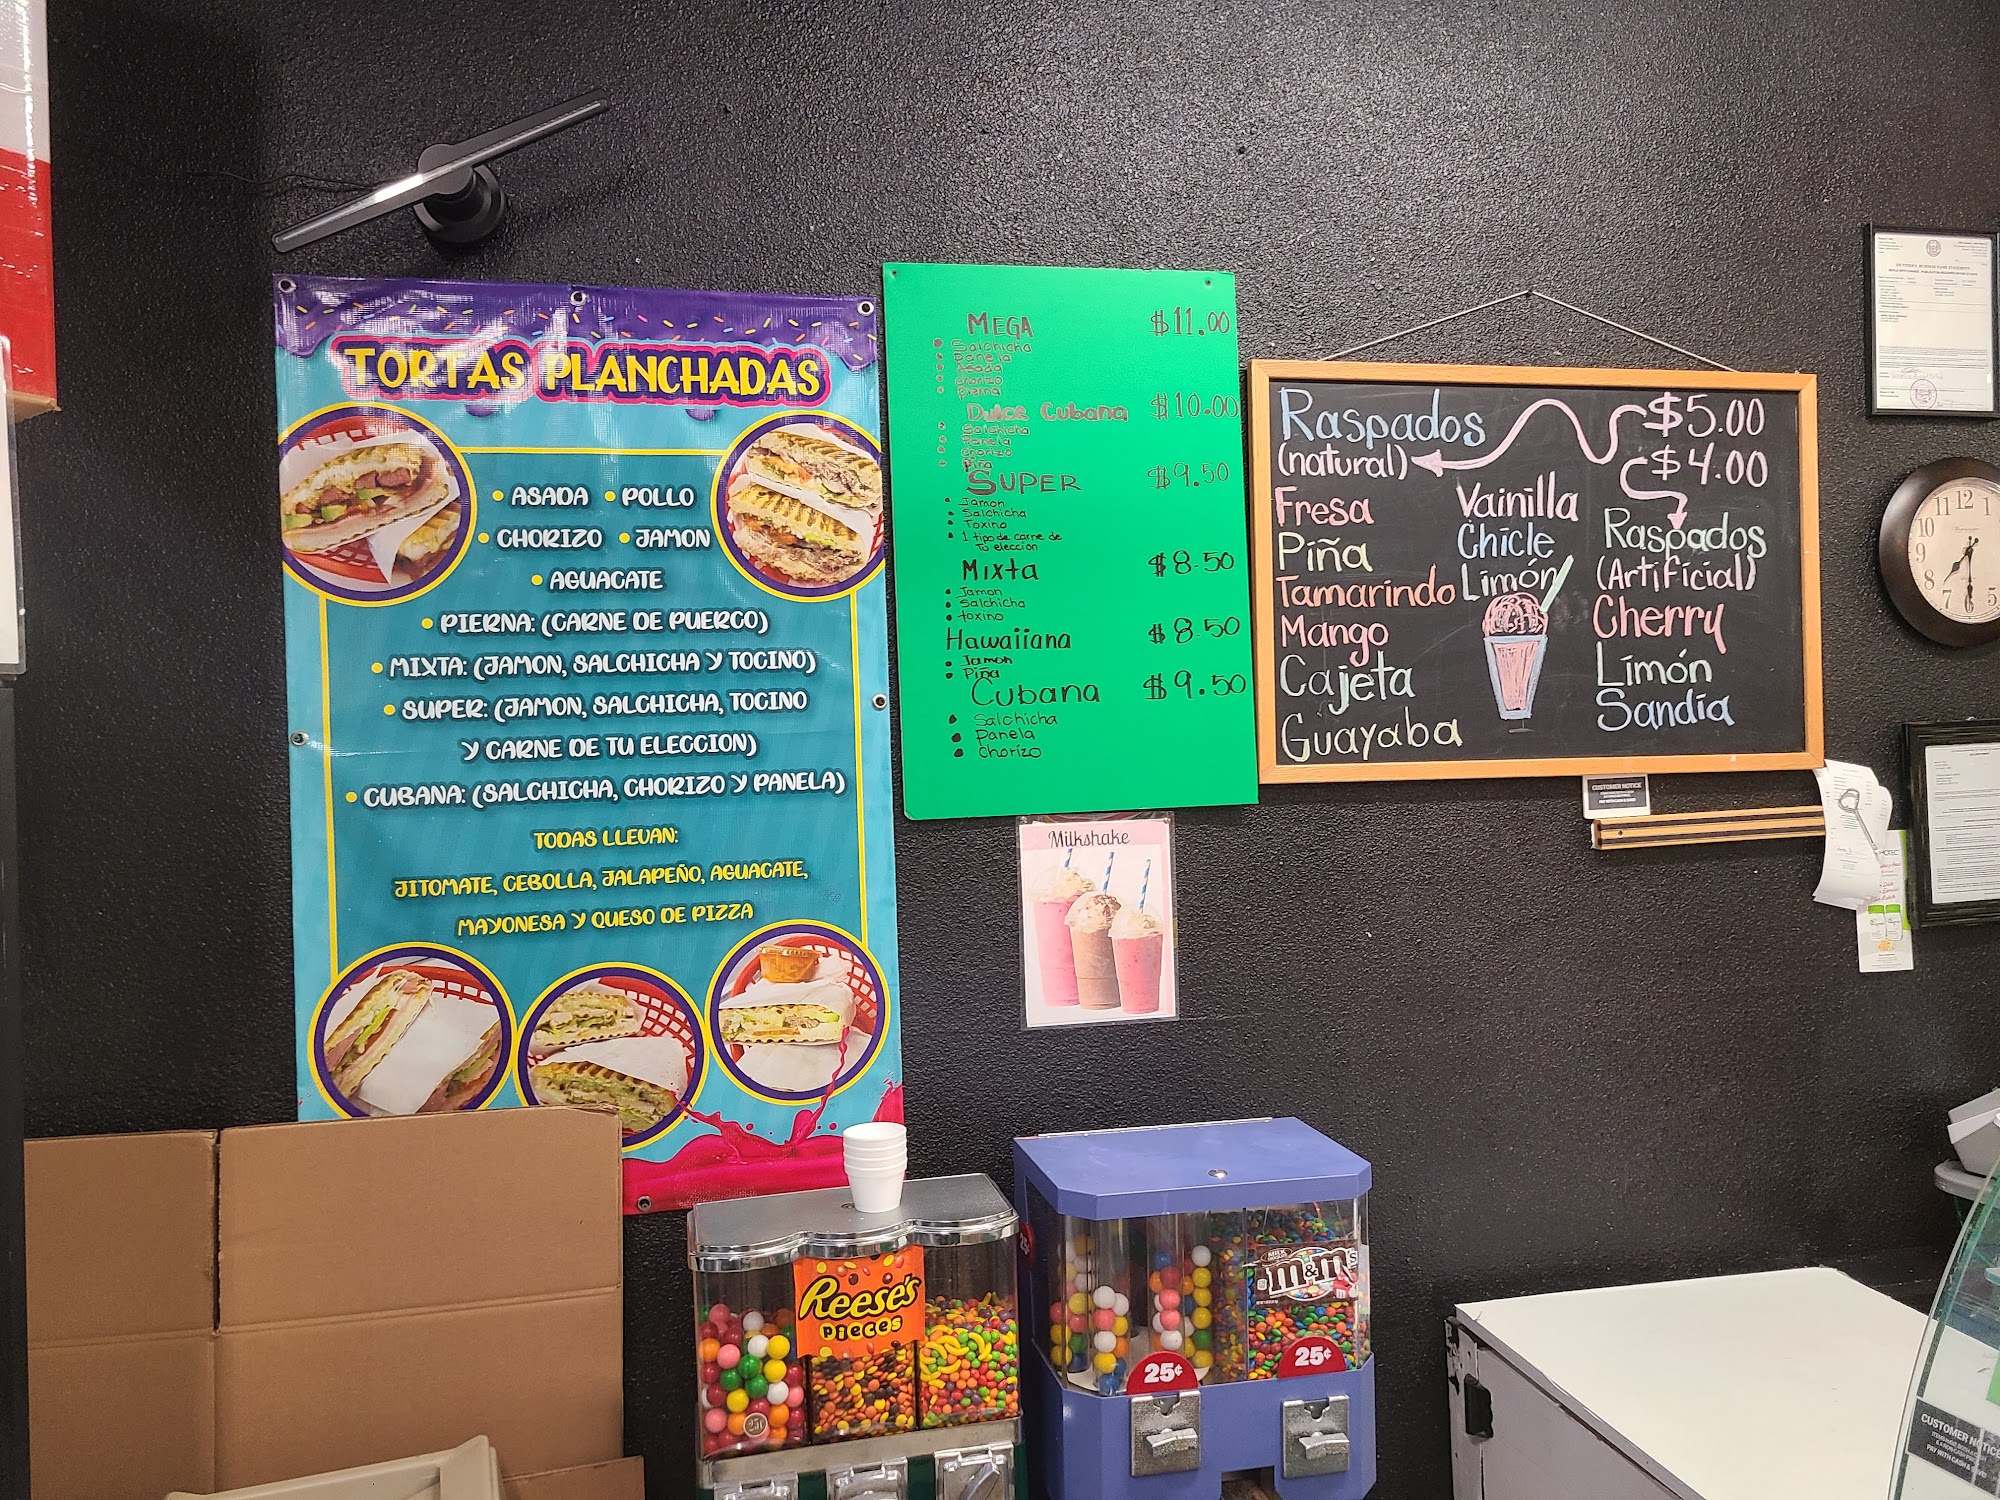 TORTAS PLANCHADAS
• ASADA • POLLO
• CHORIZO • JAMON
• AGUACATE
• PIERNA: (CARNE DE PUERCO)
• MIXTA: (JAMON, SALCHICHA Y TOCINO)
• SUPER: (JAMON, SALCHICHA, TOCINO
Y CARNE DE TU ELECCION)
• CUBANA: (SALCHICHA, CHORIZO Y PANELA)
TODAS LLEVAN:
JITOMATE, CEBOLLA, JALAPEÑO, AGUACATE,
MAYONESA Y QUESO DE PIZZA
MEGA $11.00
• Salchicha
• Panela
• Asada
• Chorizo
• Pierna
Dulce Cubana $10.00
• Salchicha
• Panela
• Chorizo
• Piña
SUPER $9.50
• Jamon
• Salchicha
• Toxino
• 1 tipo de carne de
Tu eleccion
Mixta $8.50
• Jamon
• Salchicha
• toxino
Hawaiiana $8.50
• Jamon
• Piña
Cubana $9.50
• Salchicha
• Panela
• Chorizo
Milkshake
Raspados $5.00
(natural) $4.00
Fresa
Piña
Tamarindo
Mango
Cajeta
Guayaba
Vainilla
Chicle
Limón
Raspados
(Artificial)
Cherry
Limón
Sandía
CUSTOMER NOTICE
PAY WITH CASH
11 12
10
9
8
7 6 5
Reese's
PIECES
25¢
MILK
m&m's
25¢
25¢
CUSTOMER NOTICE
PAY WITH CASH &